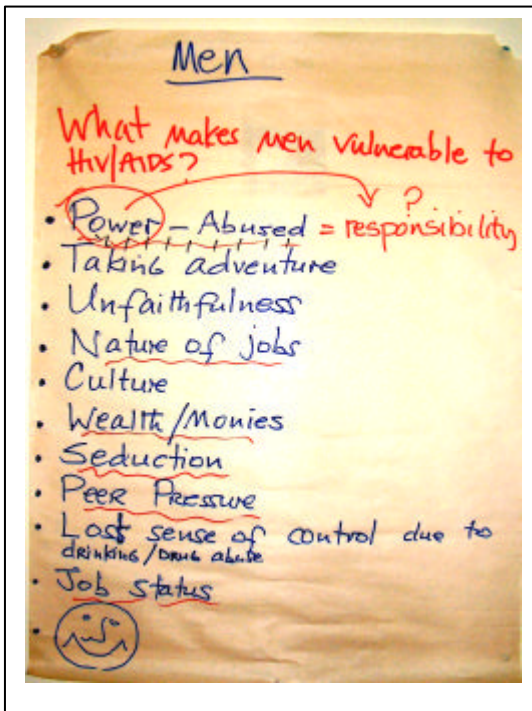 Men
What makes men vulnerable to
HIV/AIDS?
?
• Power - Abused = responsibility
• Taking adventure
• Unfaithfulness
• Nature of jobs
• Culture
• Wealth/Monies
• Seduction
• Peer Pressure
• Lost sense of control due to
drinking/Drug abuse
• Job status